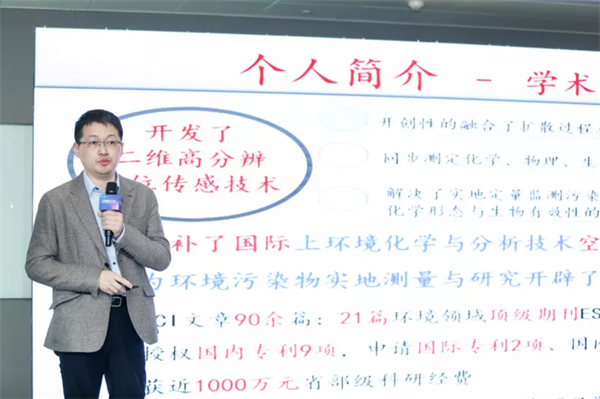 个人简介 - 学术
开发了
二维高分辨
位传感技术
开创性的融合了扩散过程
同步测定化学、物理、生
解决了实地定量监测污染
化学形态与生物有效性的
补了国际上环境化学与分析技术空
为环境污染物实地测量与研究开辟了
CI文章90余篇：21篇环境领域顶级期刊ES
授权国内专利9项，申请国际专利2项、国
获近1000万元省部级科研经费